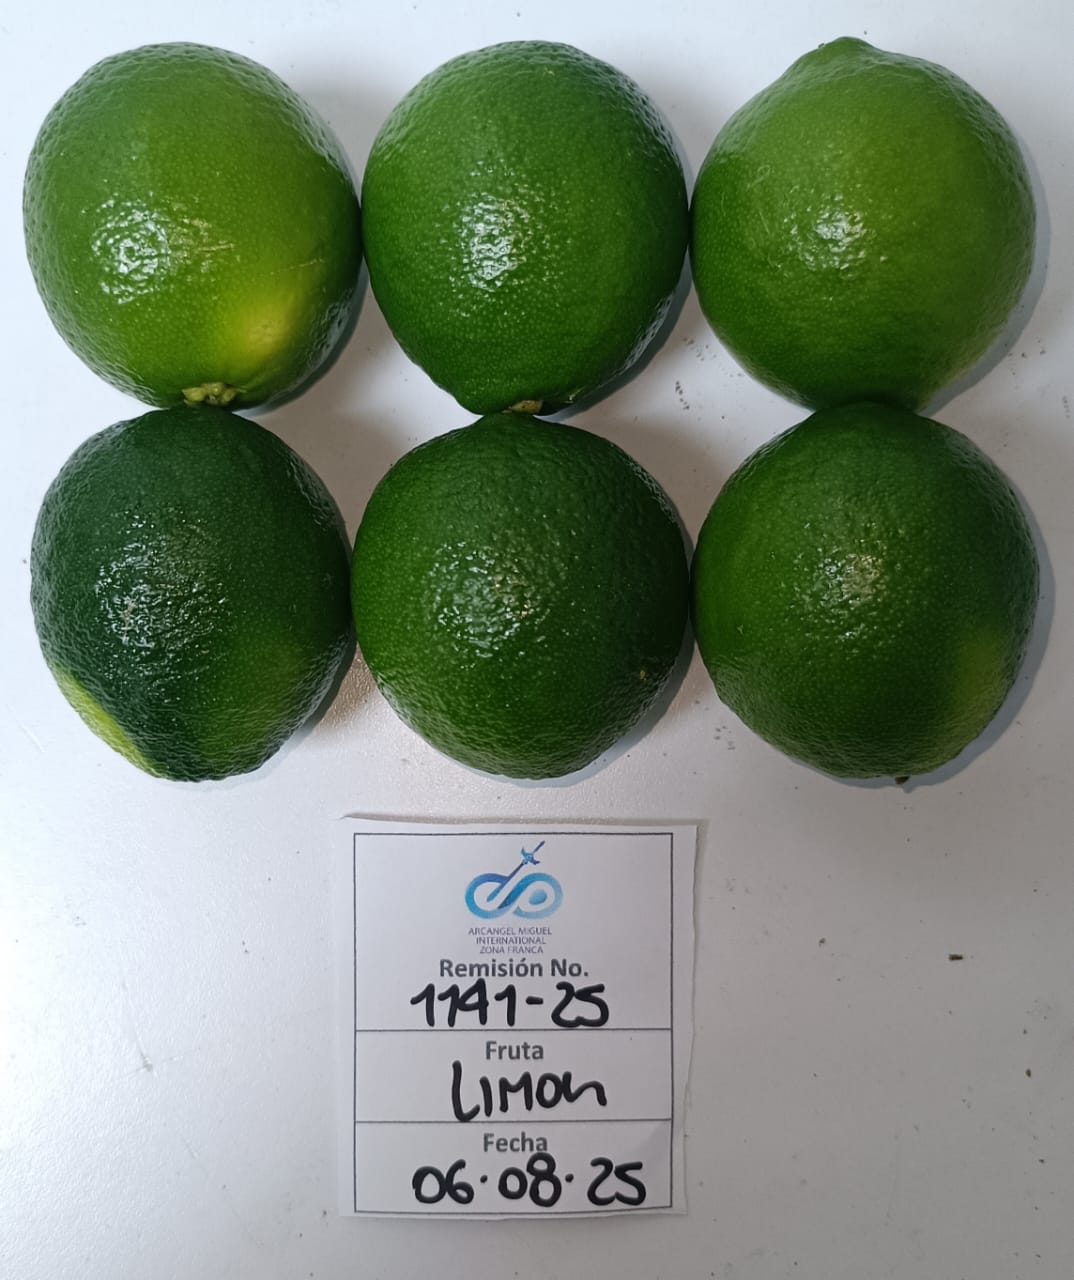 ARCANGEL MIGUEL
INTERNATIONAL
ZONA FRANCA
Remisión No.
1141-25
Fruta
LIMON
Fecha
06.08.25